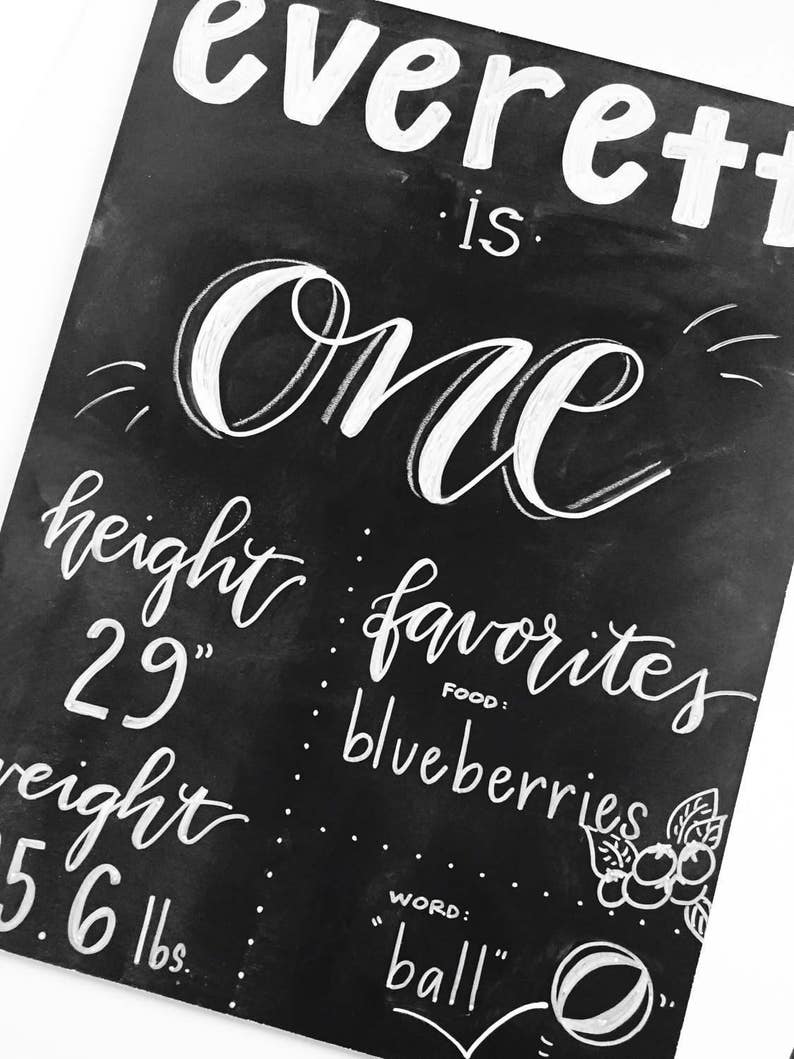 everett
·is·
one
height
29"
weight
5.6 lbs.
favorites
FOOD:
blueberries
WORD:
"ball"